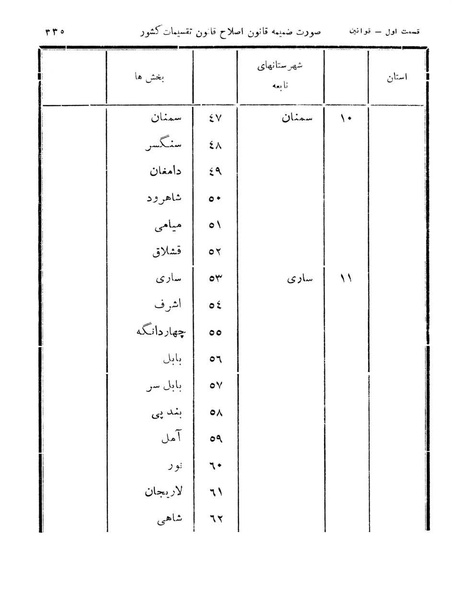 قسمت اول – قوانین صورت ضمیمه قانون اصلاح قانون تقسیمات کشور ٣٣٥
استان شهرستانهای تابعه بخش ها
١٠ سمنان ٤٧ سمنان
٤٨ سنگسر
٤٩ دامغان
٥٠ شاهرود
٥١ میامی
٥٢ قشلاق
١١ ساری ٥٣ ساری
٥٤ اشرف
٥٥ چهاردانگه
٥٦ بابل
٥٧ بابل سر
٥٨ بند پی
٥٩ آمل
٦٠ نور
٦١ لاریجان
٦٢ شاهی